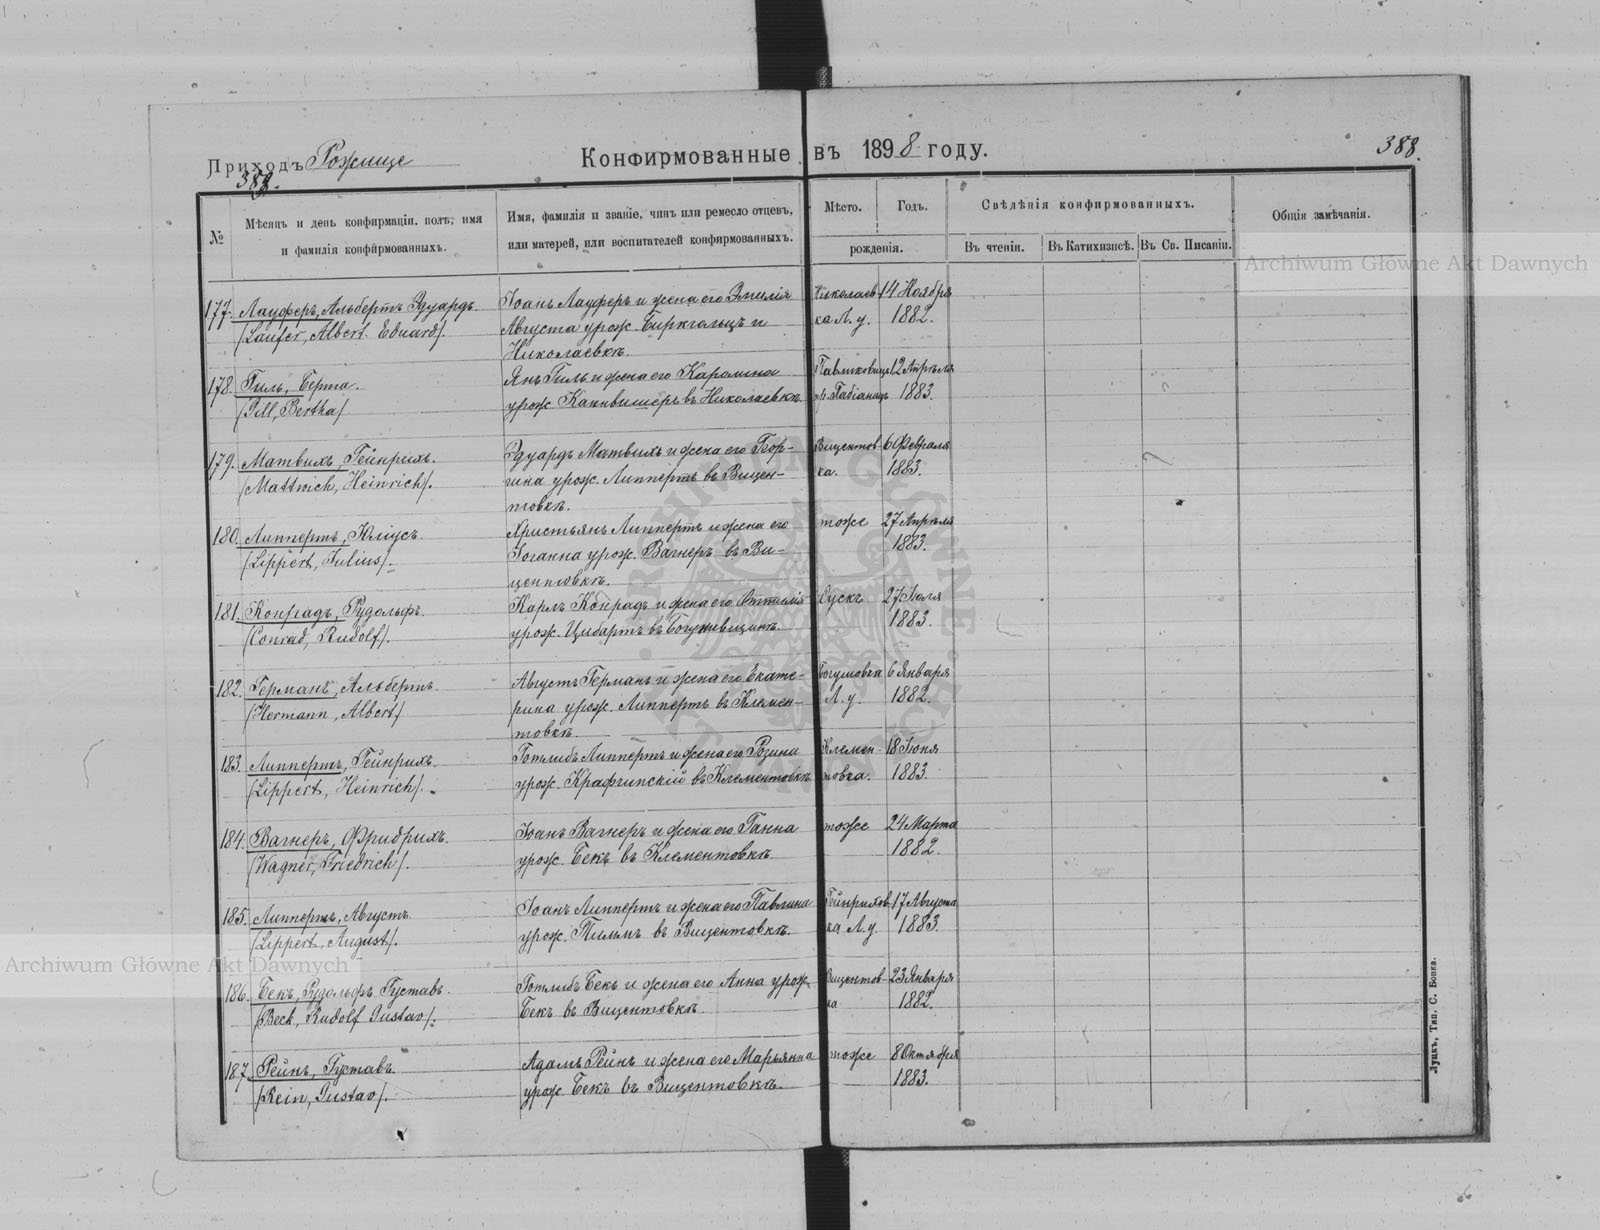 Приходъ Рожище
Конфирмованные въ 1898 году.
388.
388.
№
Мѣсяцъ и день конфирмаціи, полъ, имя
и фамилія конфирмованныхъ.
Имя, фамилія и званіе, чинъ или ремесло отцевъ,
или матерей, или воспитателей конфирмованныхъ.
Мѣсто.
Годъ.
рожденія.
Свѣдѣнія конфирмованныхъ.
Въ чтеніи.
Въ Катихизисѣ.
Въ Св. Писаніи.
Общія замѣчанія.
177. Лауферъ, Альбертъ Эдуардъ.
/Laufer, Albert Eduard/.
Іоанъ Лауферъ и жена его Эмилія
Августа урож. Биркгольцъ и
Николаевкѣ.
Николаев
ка Л. у.
14 Ноября
1882.
178. Гиль, Берта.
/Gill, Bertha/
Янъ Гиль и жена его Каролина
урож. въ Николаевкѣ.
12 Апрѣля
1883.
179. Матвихъ, Гейнрихъ.
/Mattwich, Heinrich/.
Эдуардъ Матвихъ и жена его Геор-
гина урож. Липпертъ въ Вицен-
товкѣ.
Вицентов
ка.
6 Февраля
1883.
180. Липпертъ, Юліусъ.
/Lippert, Julius/.
Христьянъ Липпертъ и жена его
Іоганна урож. Вагнеръ въ Ви-
центовкѣ.
тоже
27 Апрѣля
1883.
181. Конрадъ, Рудольфъ.
/Conrad, Rudolf/.
Карлъ Конрадъ и жена его Оттилія
урож. Цибартъ въ
Сускъ
27 Іюля
1883.
182. Германъ, Альбертъ.
/Hermann, Albert/
Августъ Германъ и жена его Екате-
рина урож. Липпертъ въ Клемен-
товкѣ.
Богумовка
Л. у.
6 Января
1882.
183. Липпертъ, Гейнрихъ.
/Lippert, Heinrich/.
Готлибъ Липпертъ и жена его Розина
урож. въ Клементовкѣ
Клемен-
товка.
18 Іюня
1883.
184. Вагнеръ, Фридрихъ.
/Wagner, Friedrich/.
Іоанъ Вагнеръ и жена его Ганна
урож. Бекъ въ Клементовкѣ.
тоже
24 Марта
1882.
185. Липпертъ, Августъ.
/Lippert, August/.
Іоанъ Липпертъ и жена его Павлина
урож. Тиммъ въ Вицентовкѣ.
Гейнрихов
ка Л. у.
17 Августа
1883.
186. Бекъ, Рудольфъ Густавъ.
/Beck, Rudolf Gustav/.
Готлибъ Бекъ и жена его Анна урож.
Бекъ въ Вицентовкѣ.
Вицентов-
ка
23 Января
1882.
187. Рейнъ, Густавъ.
/Rein, Gustav/.
Адамъ Рейнъ и жена его Марьянна
урож. Бекъ въ Вицентовкѣ.
тоже
8 Октября
1883.
Луцкъ, Тип. С. Бонка.
Archiwum Główne Akt Dawnych
Archiwum Główne Akt Dawnych